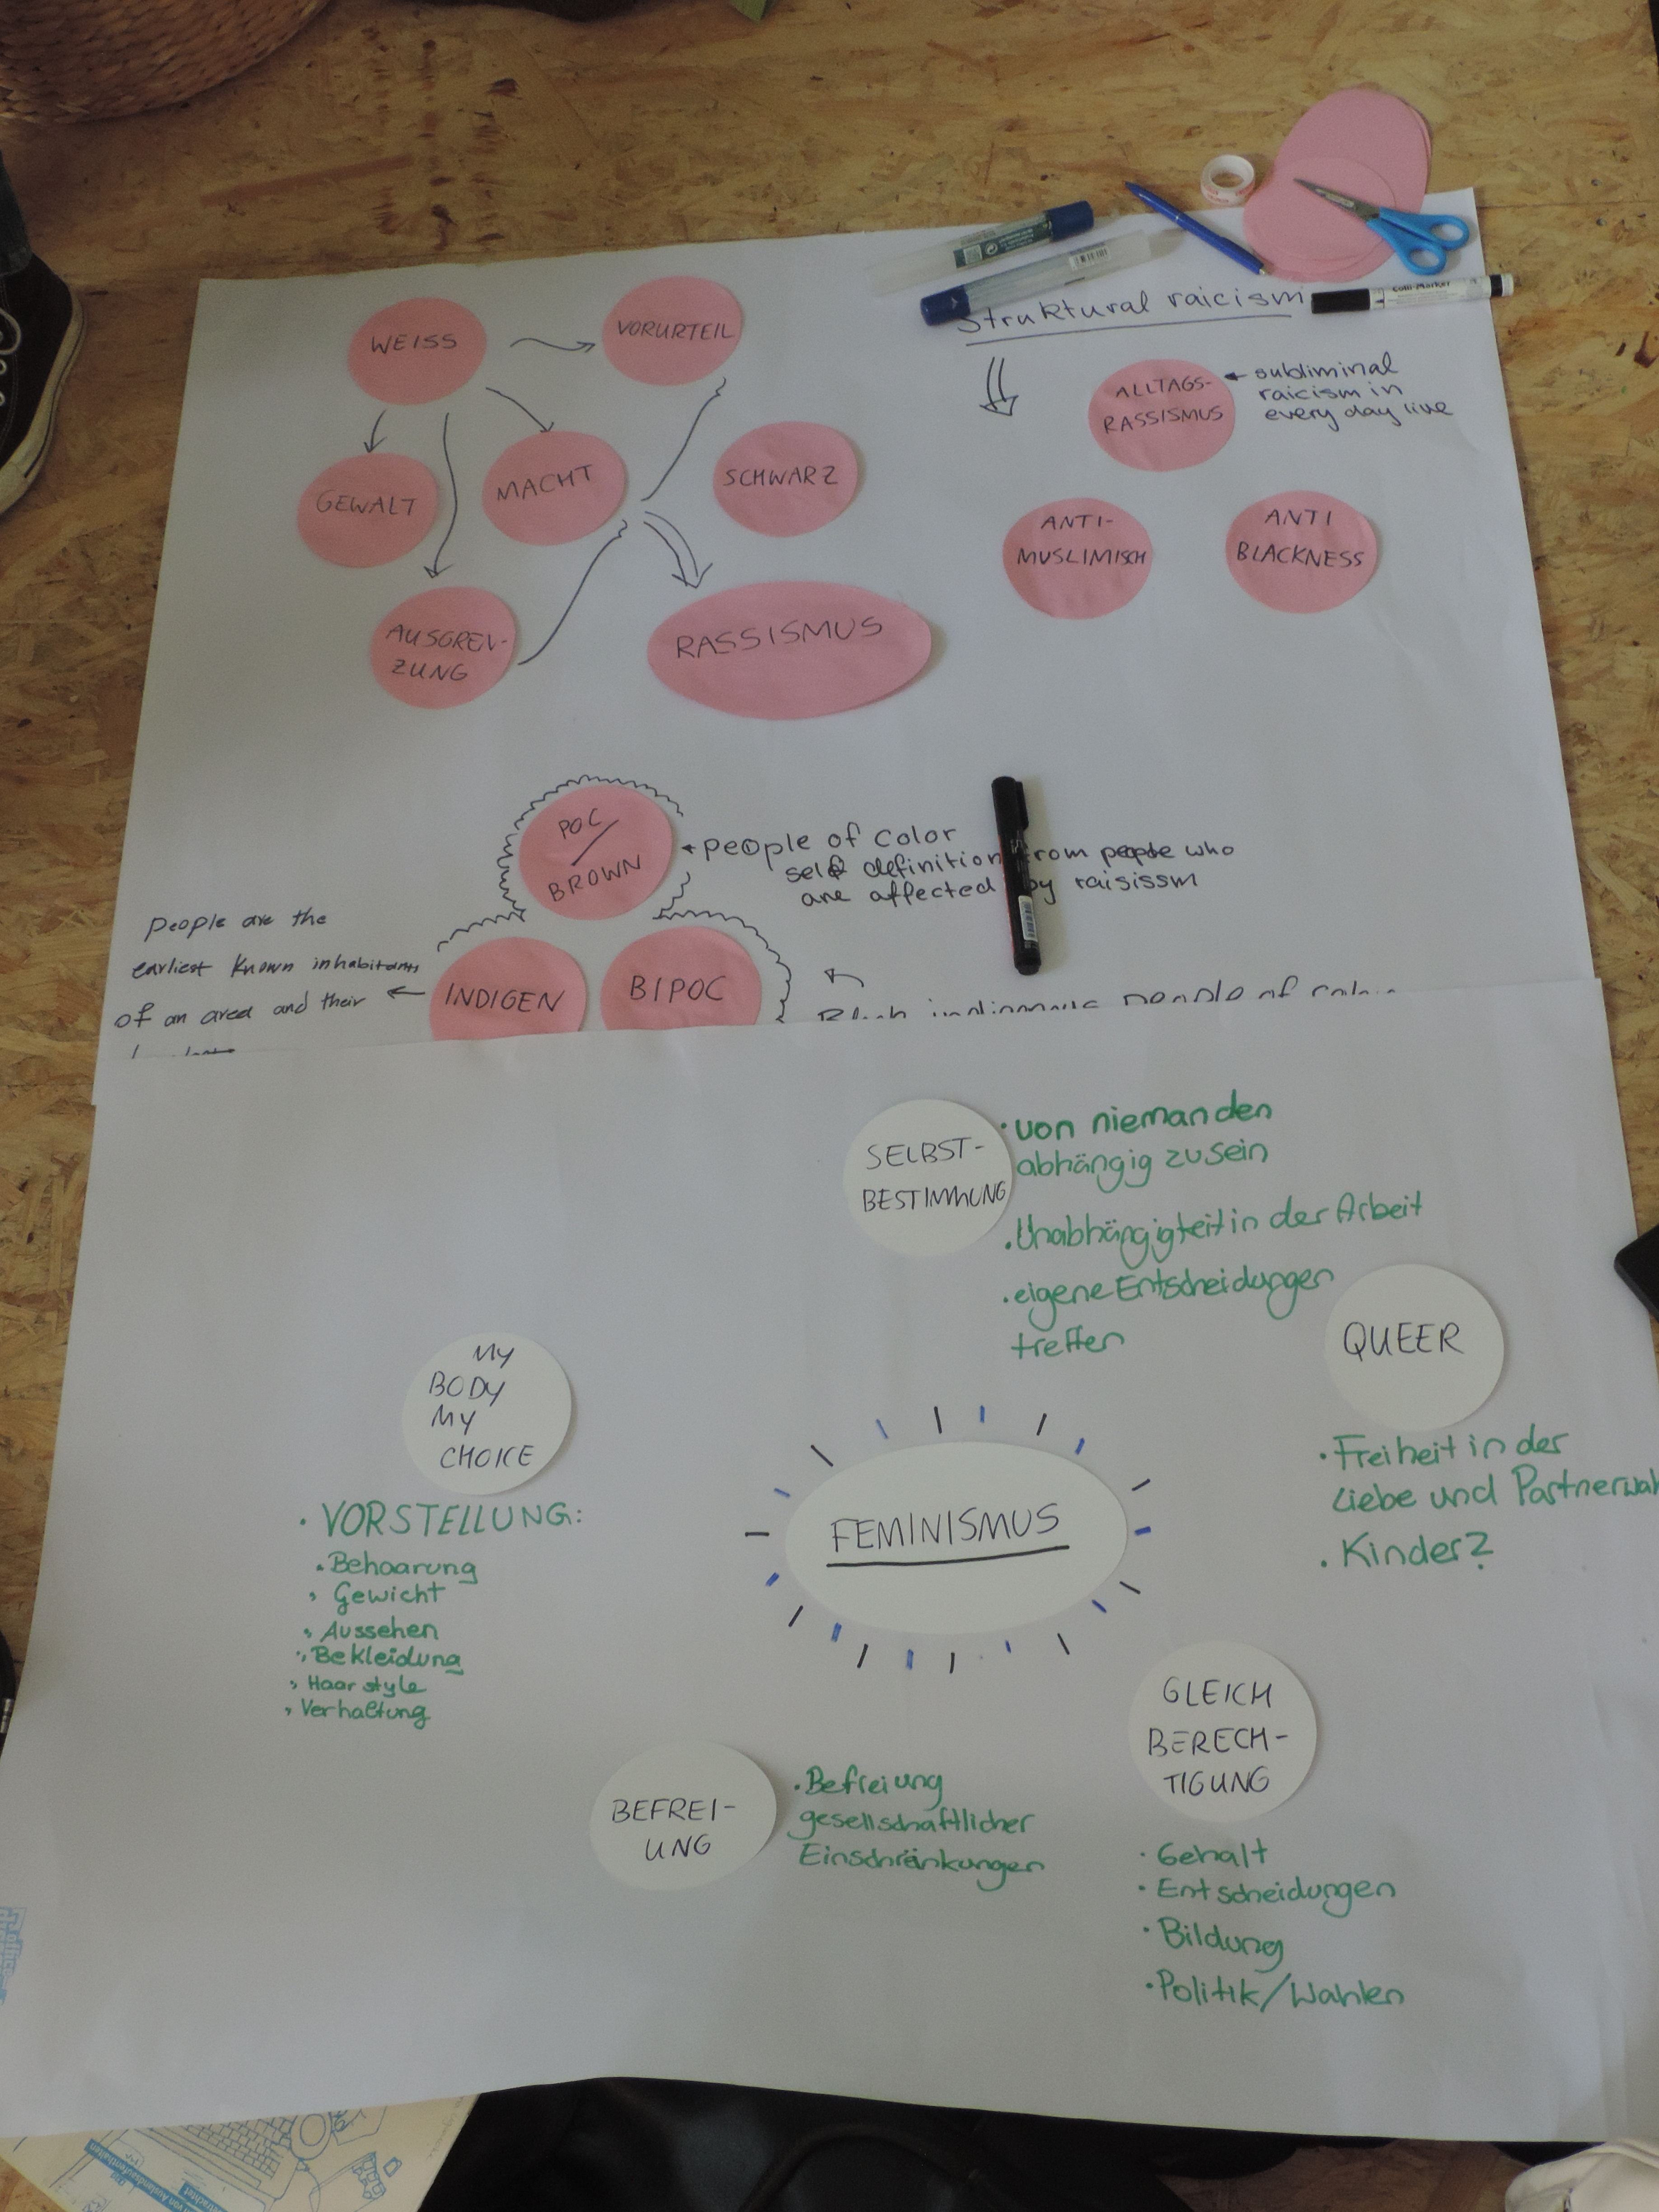 WEISS
VORURTEIL
GEWALT
MACHT
SCHWARZ
AUSGREN-
ZUNG
RASSISMUS
Struktural raicism
ALLTAGS-
RASSISMUS
subliminal
raicism in
every day live
ANTI-
MUSLIMISCH
ANTI
BLACKNESS
POC/
BROWN
people of color
self definition from people who
are affected by raisissm
People are the
earliest known inhabitants
of an area and their
INDIGEN
BIPOC
Black indigenous people of color
SELBST-
BESTIMMUNG
• von niemanden
abhängig zu sein
• Unabhängigkeit in der Arbeit
• eigene Entscheidungen
treffen
QUEER
• Freiheit in der
Liebe und Partnerwah
• Kinder?
MY
BODY
MY
CHOICE
• VORSTELLUNG:
• Behaarung
• Gewicht
• Aussehen
• Bekleidung
• Haarstyle
• Verhaltung
FEMINISMUS
GLEICH
BERECH-
TIGUNG
• Gehalt
• Entscheidungen
• Bildung
• Politik/Wahlen
BEFREI-
UNG
• Befreiung
gesellschaftlicher
Einschränkungen